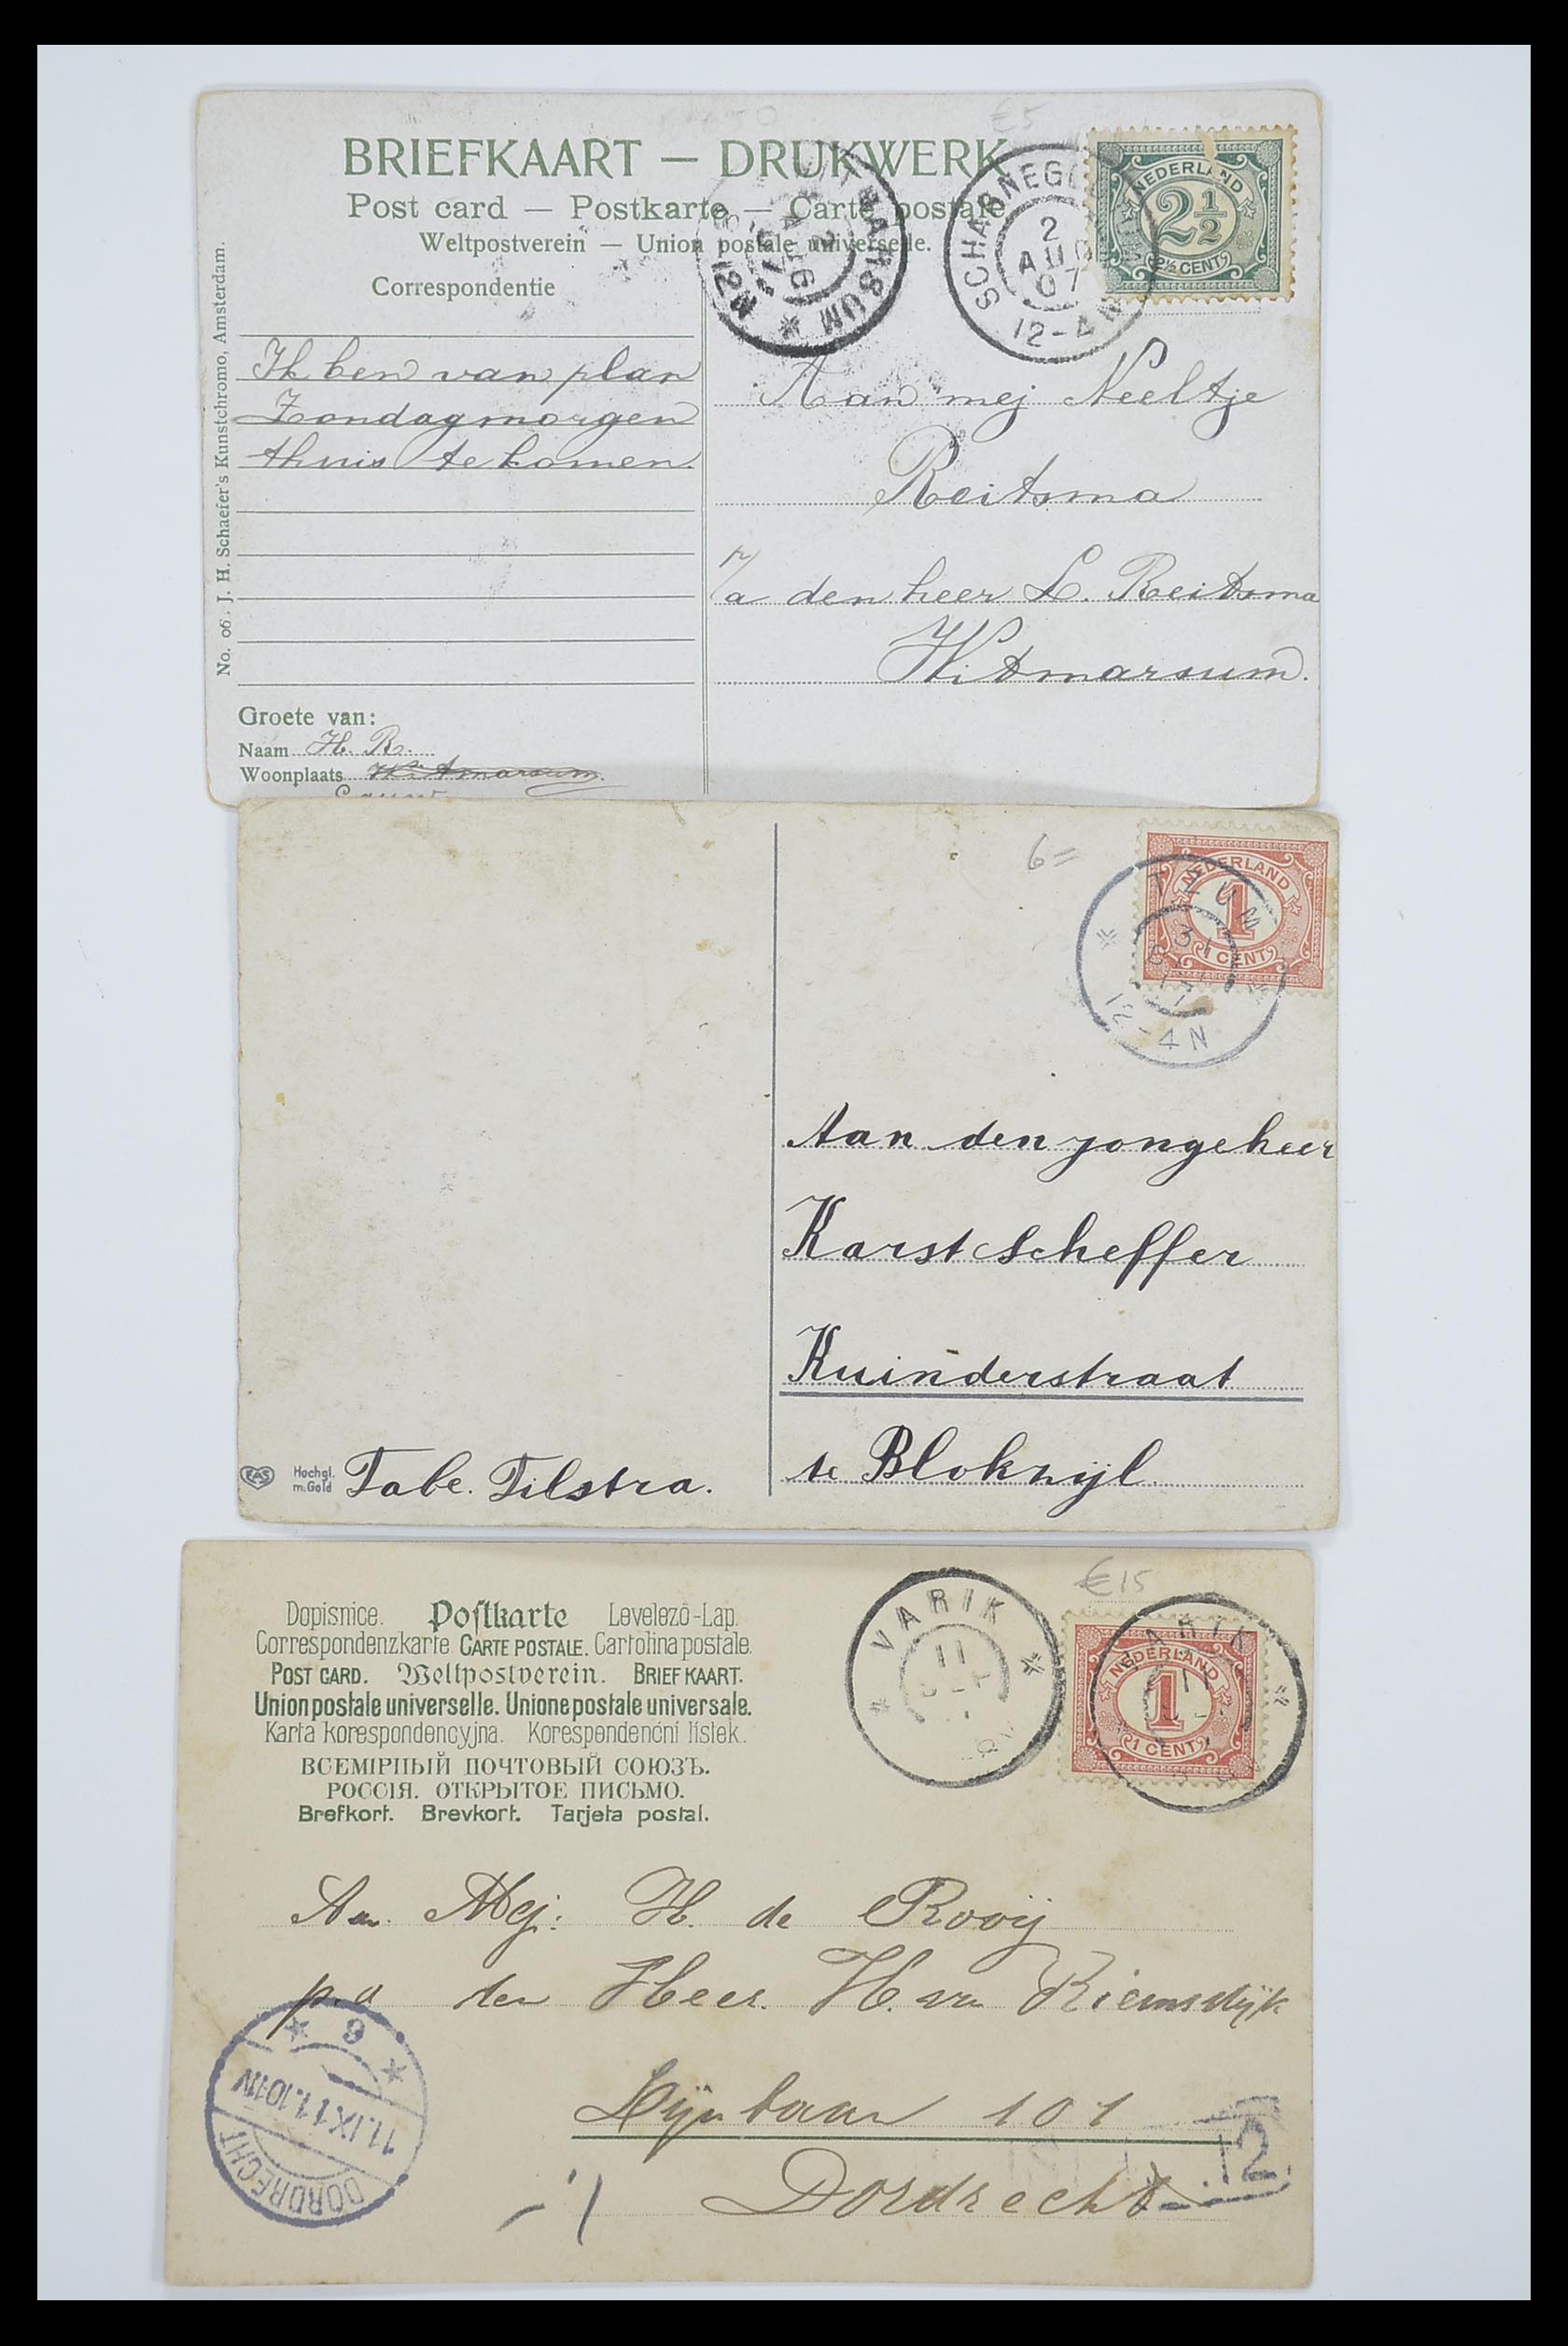 €5
BRIEFKAART — DRUKWERK
Post card — Postkarte — Carte postale
Weltpostverein — Union postale universelle.
Correspondentie
No. 06. J. H. Schaefer's Kunstchromo, Amsterdam.
NEDERLAND
2½
2½ CENT
2
AUG
07
12-4N
Ik ben van plan
Zondagmorgen
thuis te komen.
Aan mej Neeltje
Reitsma
p/a den heer L. Reitsma
Witmarsum.
Groete van:
Naam H. R.
Woonplaats Witmarsum.
6=
NEDERLAND
1
1 CENT
TZUM
31
12-4N
Aan den jongeheer
Karst Scheffer
Kuinderstraat
te Blokzijl
EAS
Hochgl.
m. Gold
Tabe. Tilstra.
€15
Dopisnice. Postkarte Levelező-Lap.
Correspondenzkarte CARTE POSTALE. Cartolina postale.
POST CARD. Weltpostverein. BRIEFKAART.
Union postale universelle. Unione postale universale.
Karta korespondencyjna. Korespondenční lístek.
ВСЕМІРНЫЙ ПОЧТОВЫЙ СОЮЗЪ.
РОССІЯ. ОТКРЫТОЕ ПИСЬМО.
Brefkort. Brevkort. Tarjeta postal.
VARIK
11
SEP
NEDERLAND
1
1 CENT
ARIK
11
An. Mej: H. de Rooij
p.a den Heer. H. van Riemsdijk
Lijnbaan 101
Dordrecht
9
11.IX.11.10-11V
DORDRECHT
12